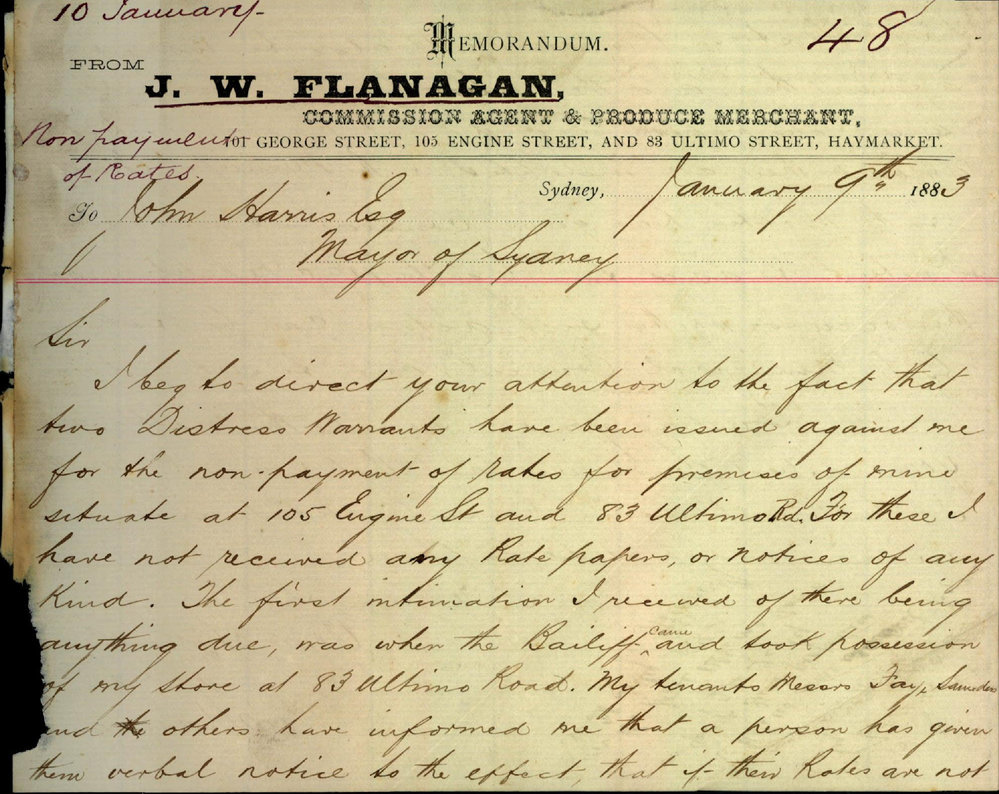 10 January
48
MEMORANDUM.
FROM
J. W. FLANAGAN,
COMMISSION AGENT & PRODUCE MERCHANT,
Non payment
701 GEORGE STREET, 105 ENGINE STREET, AND 83 ULTIMO STREET, HAYMARKET.
of Rates.
Sydney, January 9th 1883
To John Harris Esq
Mayor of Sydney
Sir
I beg to direct your attention to the fact that
two Distress Warrants have been issued against me
for the non-payment of rates for premises of mine
situate at 105 Engine St and 83 Ultimo Rd. For these I
have not received any Rate papers, or notices of any
Kind. The first intimation I received of there being
anything due, was when the Bailiff came and took possession
of my store at 83 Ultimo Road. My tenants Messrs Fay, Saunders
and others have informed me that a person has given
them verbal notice to the effect, that if their Rates are not